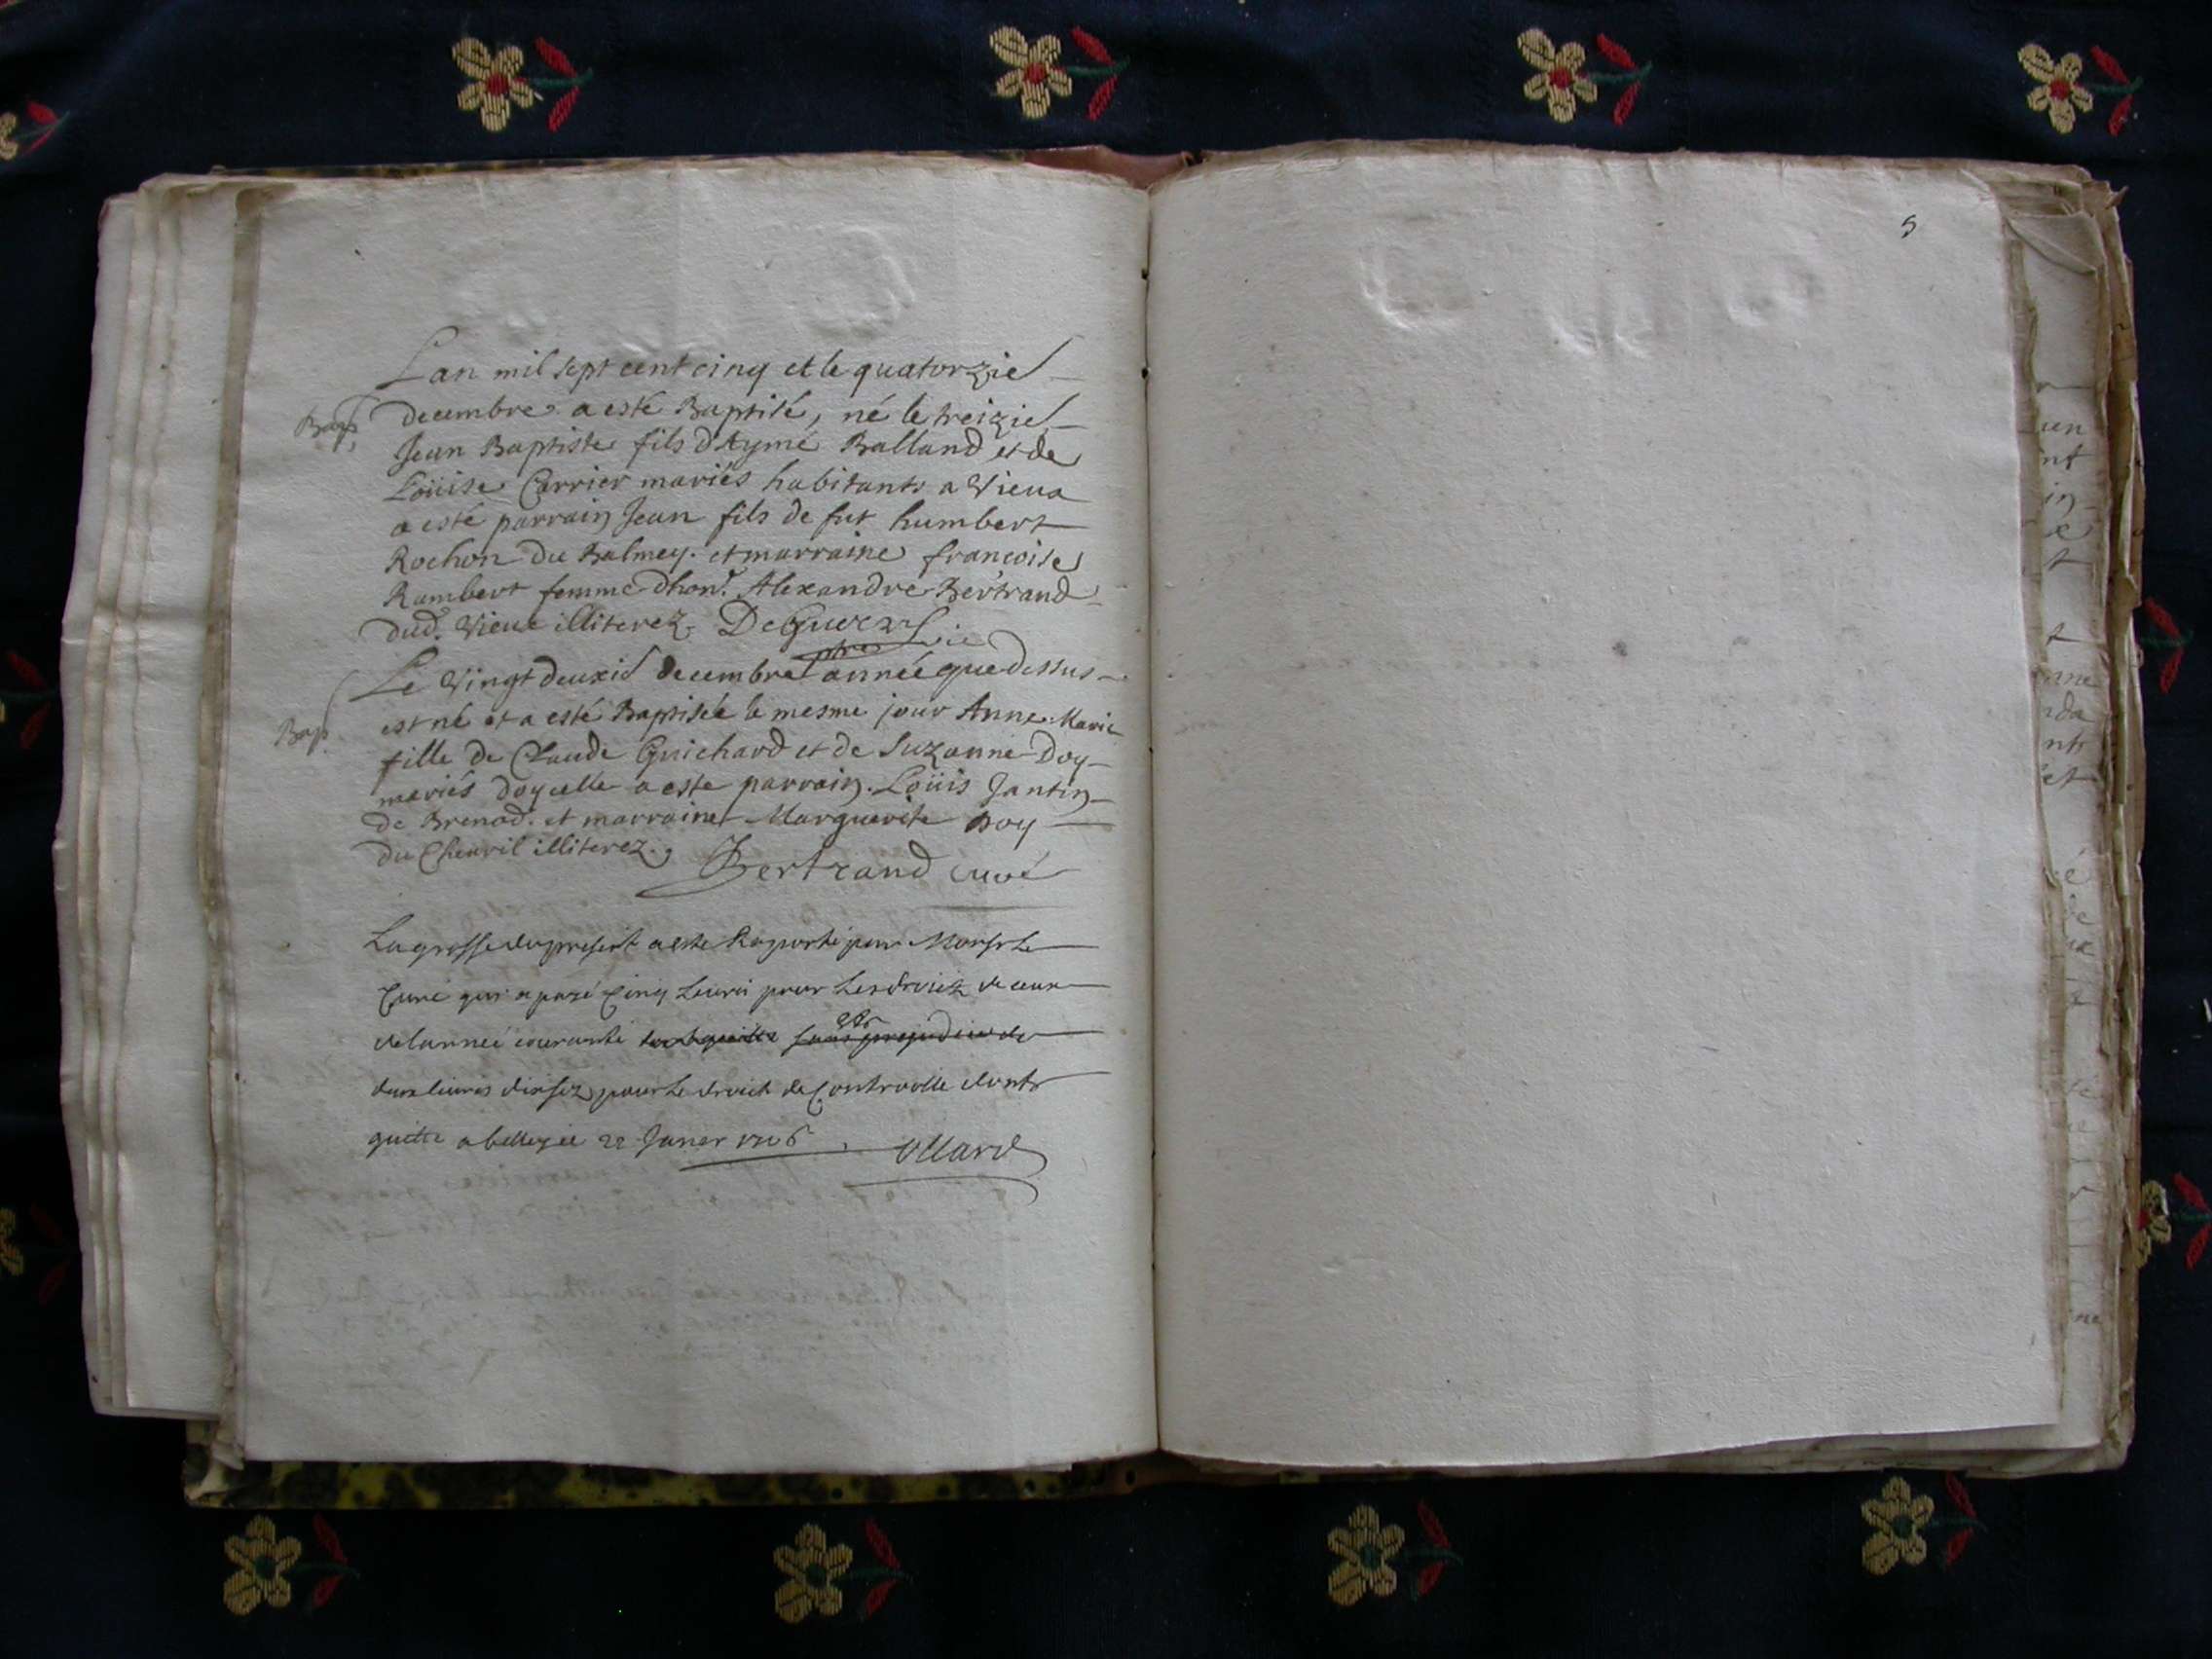 Lan mil sept cent cinq et le quatorzie
Bap decembre a esté Baptisé, né le treizie
Jean Baptiste fils d'Aymé Balland et de
Loüise Carrier mariés habitants a Vieux
a esté parrain Jean fils de fut humbert
Rochon du Balmey. et marraine francoise
Rambert femme dhon. Alexandre Bertrand
dud. Vieux illiterez. DeGuerry
ptre
Le Vingt deuxie decembre année que dessus
est né et a esté Baptisée le mesme jour Anne Marie
Bap fille de Claude Guichard et de Suzanne Doy
mariés doycelle a este parrain. Loüis Jantin
de Brenod. et marraine Marguerite Doy
du Cheuril illiterez.
Bertrand curé
La grosse du present a este Raporté par Monsr Le
Curé qui a payé Cinq Liures pour Les droicts de
de lannée courante sans prejudice de
deux liures dix solz pour Le droict de Controolle dont
quitte a belley ce 22 Januer 1706 Ollard
5